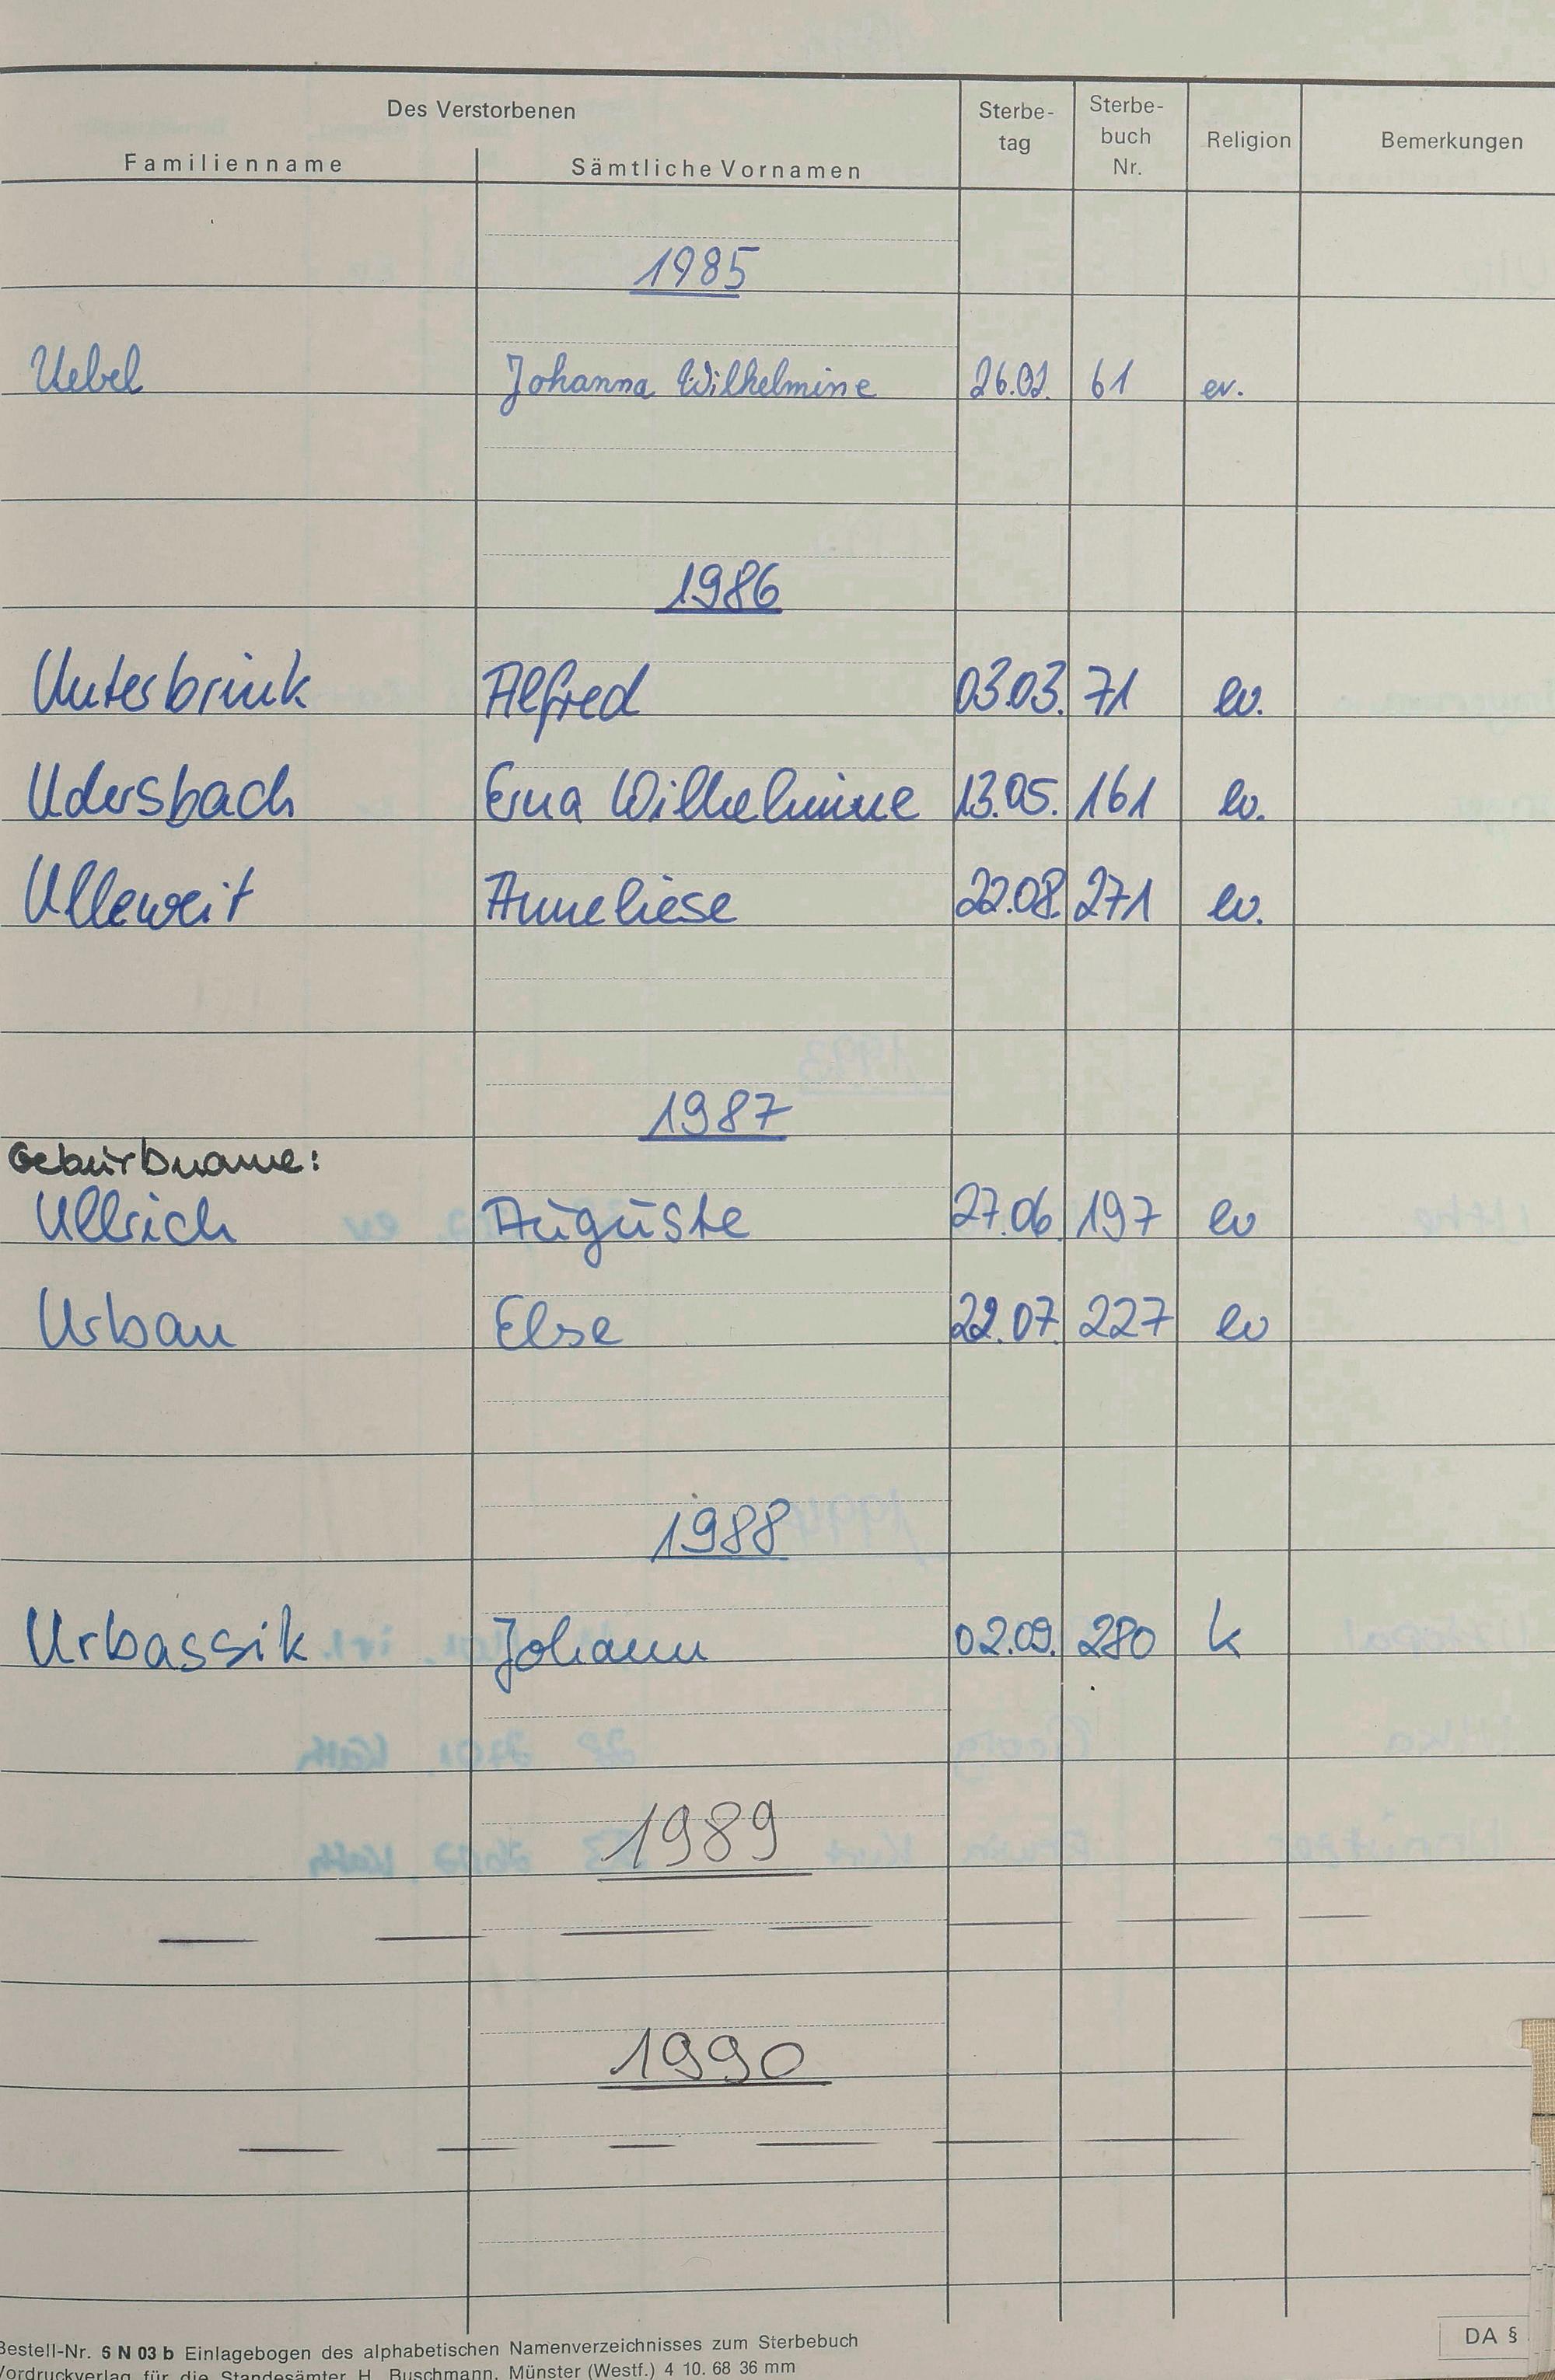 Des Verstorbenen
Familienname Sämtliche Vornamen Sterbe-tag Sterbe-buch Nr. Religion Bemerkungen
1985
Uebel Johanna Wilhelmine 26.02. 61 ev.
1986
Unterbrink Alfred 03.03. 71 ev.
Udersbach Erna Wilhelmine 13.05. 161 ev.
Ulleweit Anneliese 22.08. 271 ev.
1987
Geburtsname:
Ullrich Auguste 27.06. 197 ev
Urban Else 22.07. 227 ev
1988
Urbassik Johann 02.09. 280 k
1989
1990
Bestell-Nr. 6 N 03 b Einlagebogen des alphabetischen Namenverzeichnisses zum Sterbebuch
Vordruckverlag für die Standesämter H. Buschmann, Münster (Westf.) 4 10. 68 36 mm
DA §